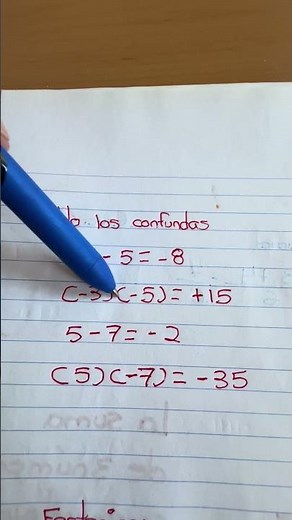 No los confundas
- 5 = -8
(-3)(-5) = +15
5 - 7 = -2
(5)(-7) = -35